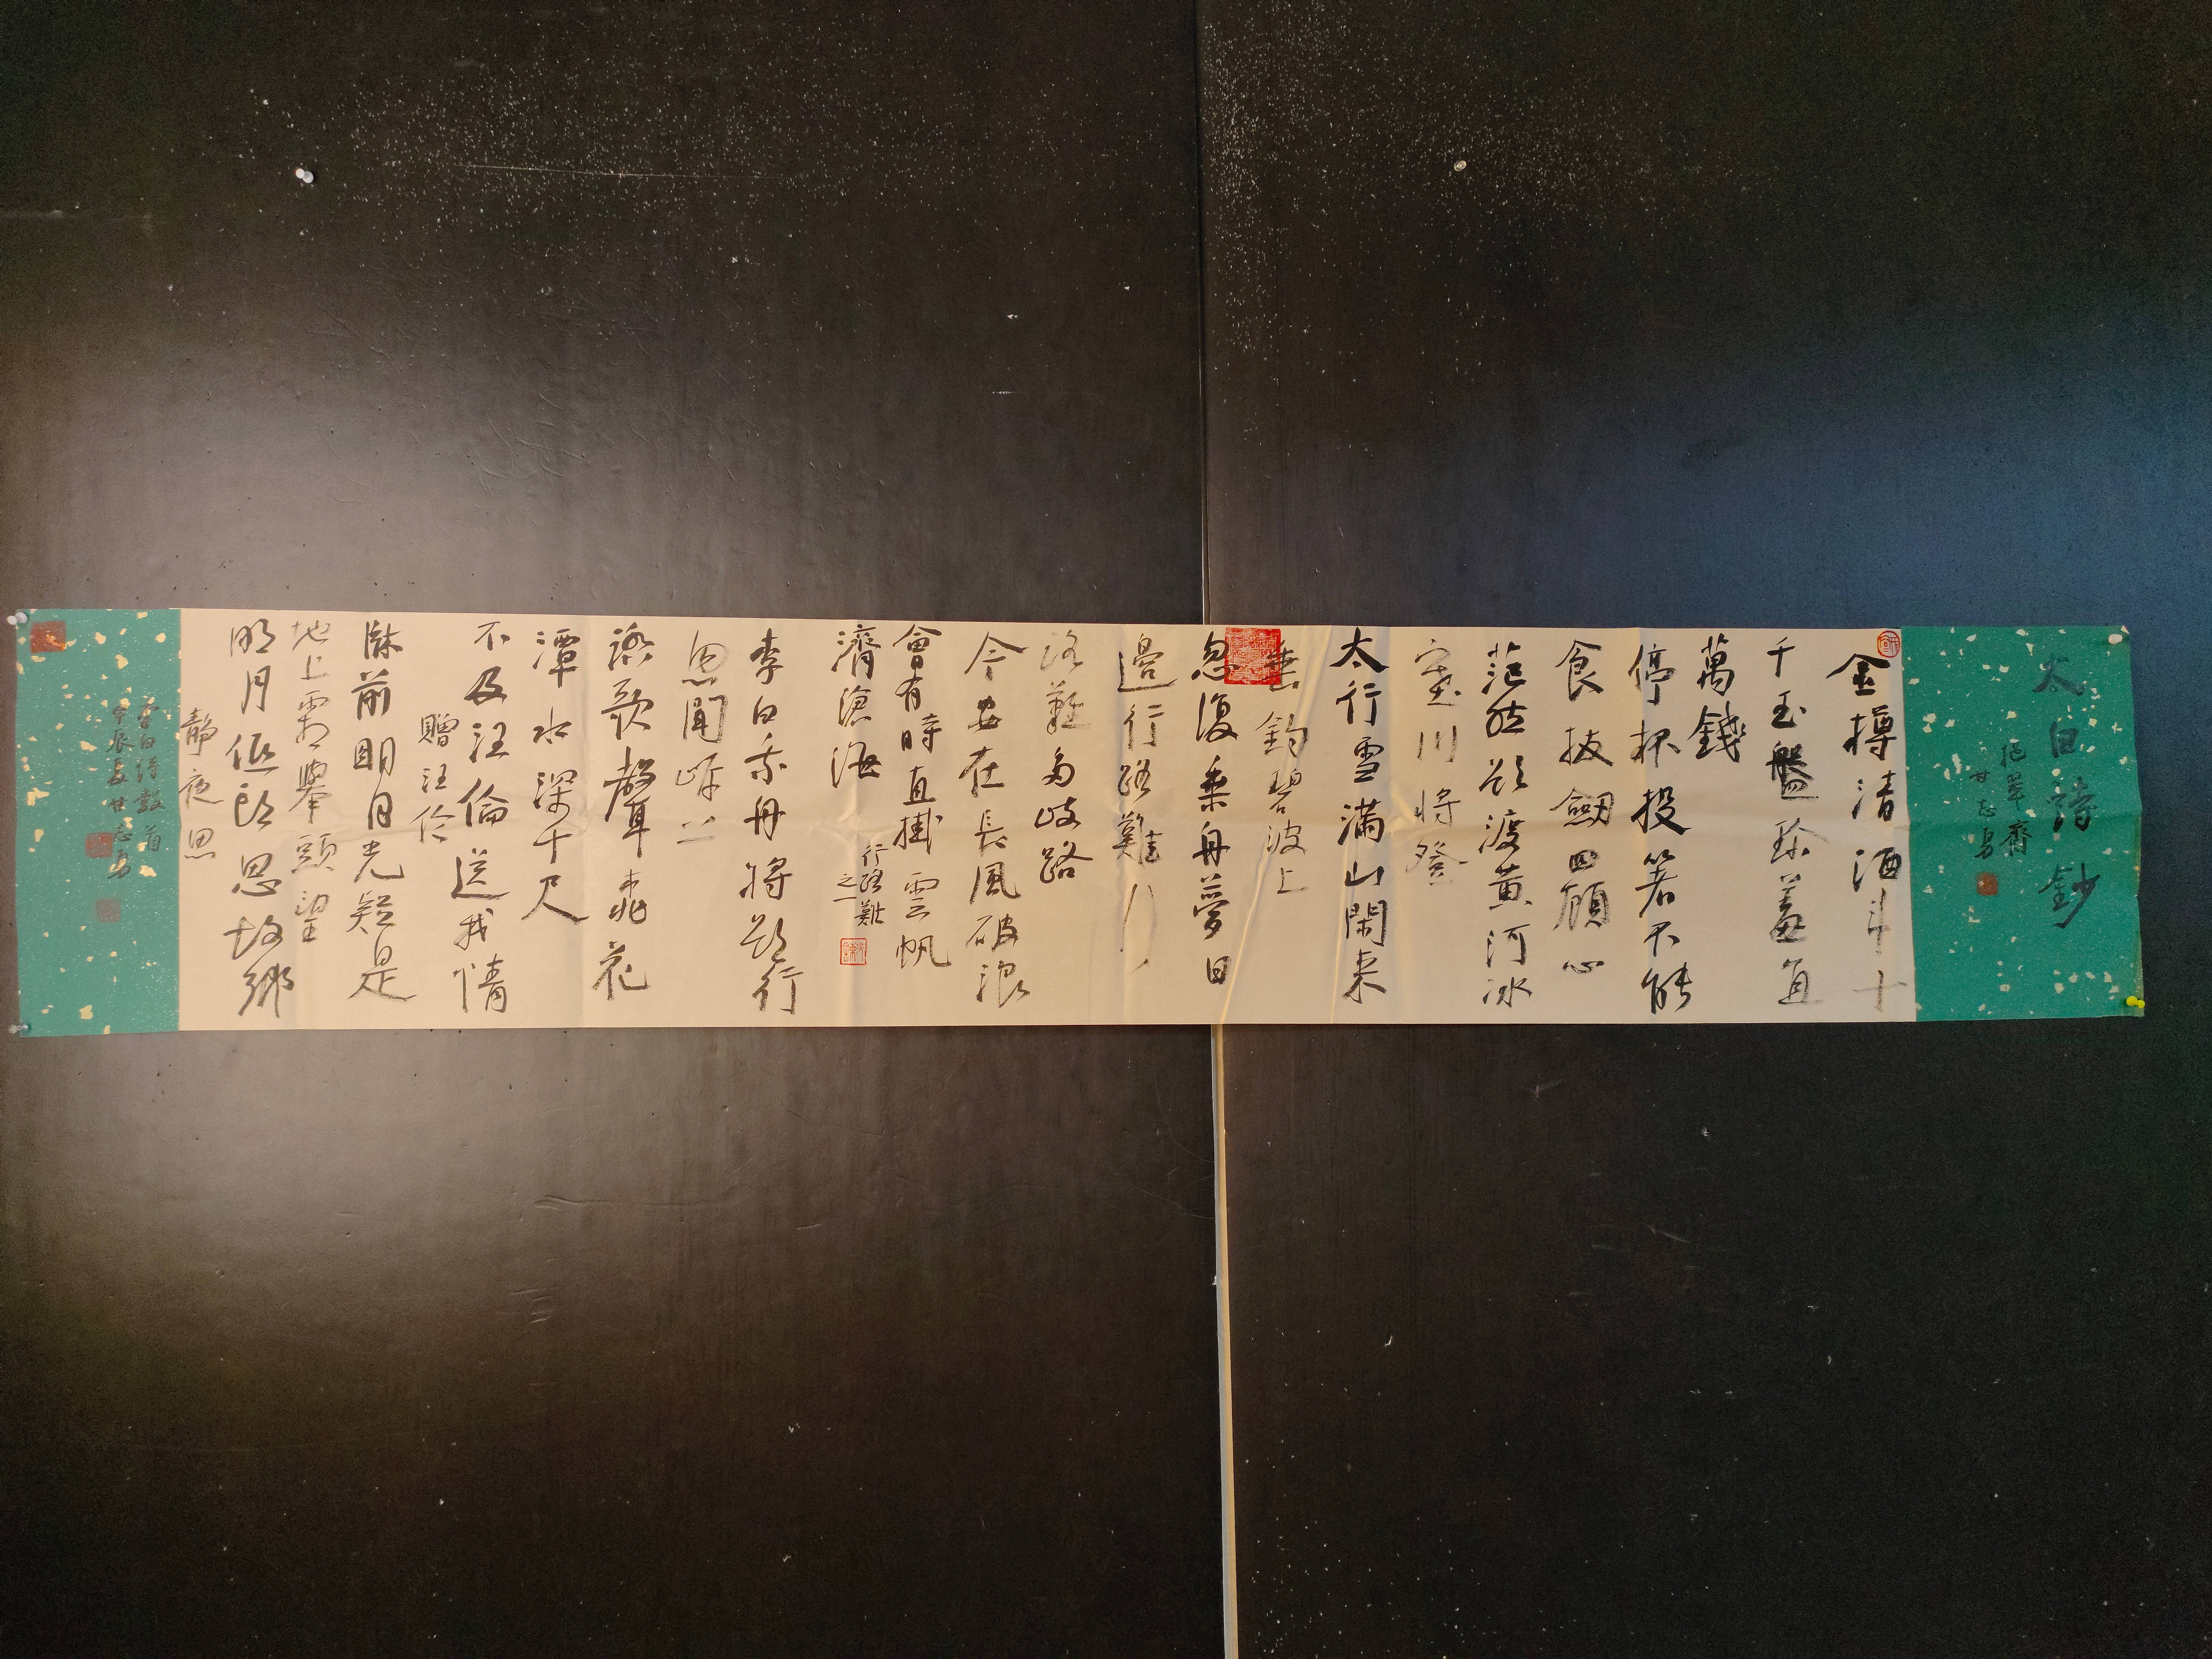 太白詩鈔
挹翠齋
甘志勇
金樽清酒斗十
千玉盤珍羞直
萬錢
停杯投箸不能
食拔劍四顧心
茫然欲渡黃河冰
塞川將登
太行雪滿山閑來
垂釣碧波上
忽復乘舟夢日
邊行路難行
路難多歧路
今安在長風破浪
會有時直掛雲帆
濟滄海
行路難
之一
李白乘舟將欲行
忽聞岸上
踏歌聲桃花
潭水深千尺
不及汪倫送我情
贈汪倫
牀前明月光疑是
地上霜舉頭望
明月低頭思故鄉
靜夜思
李白詩數首
甲辰夏甘志勇